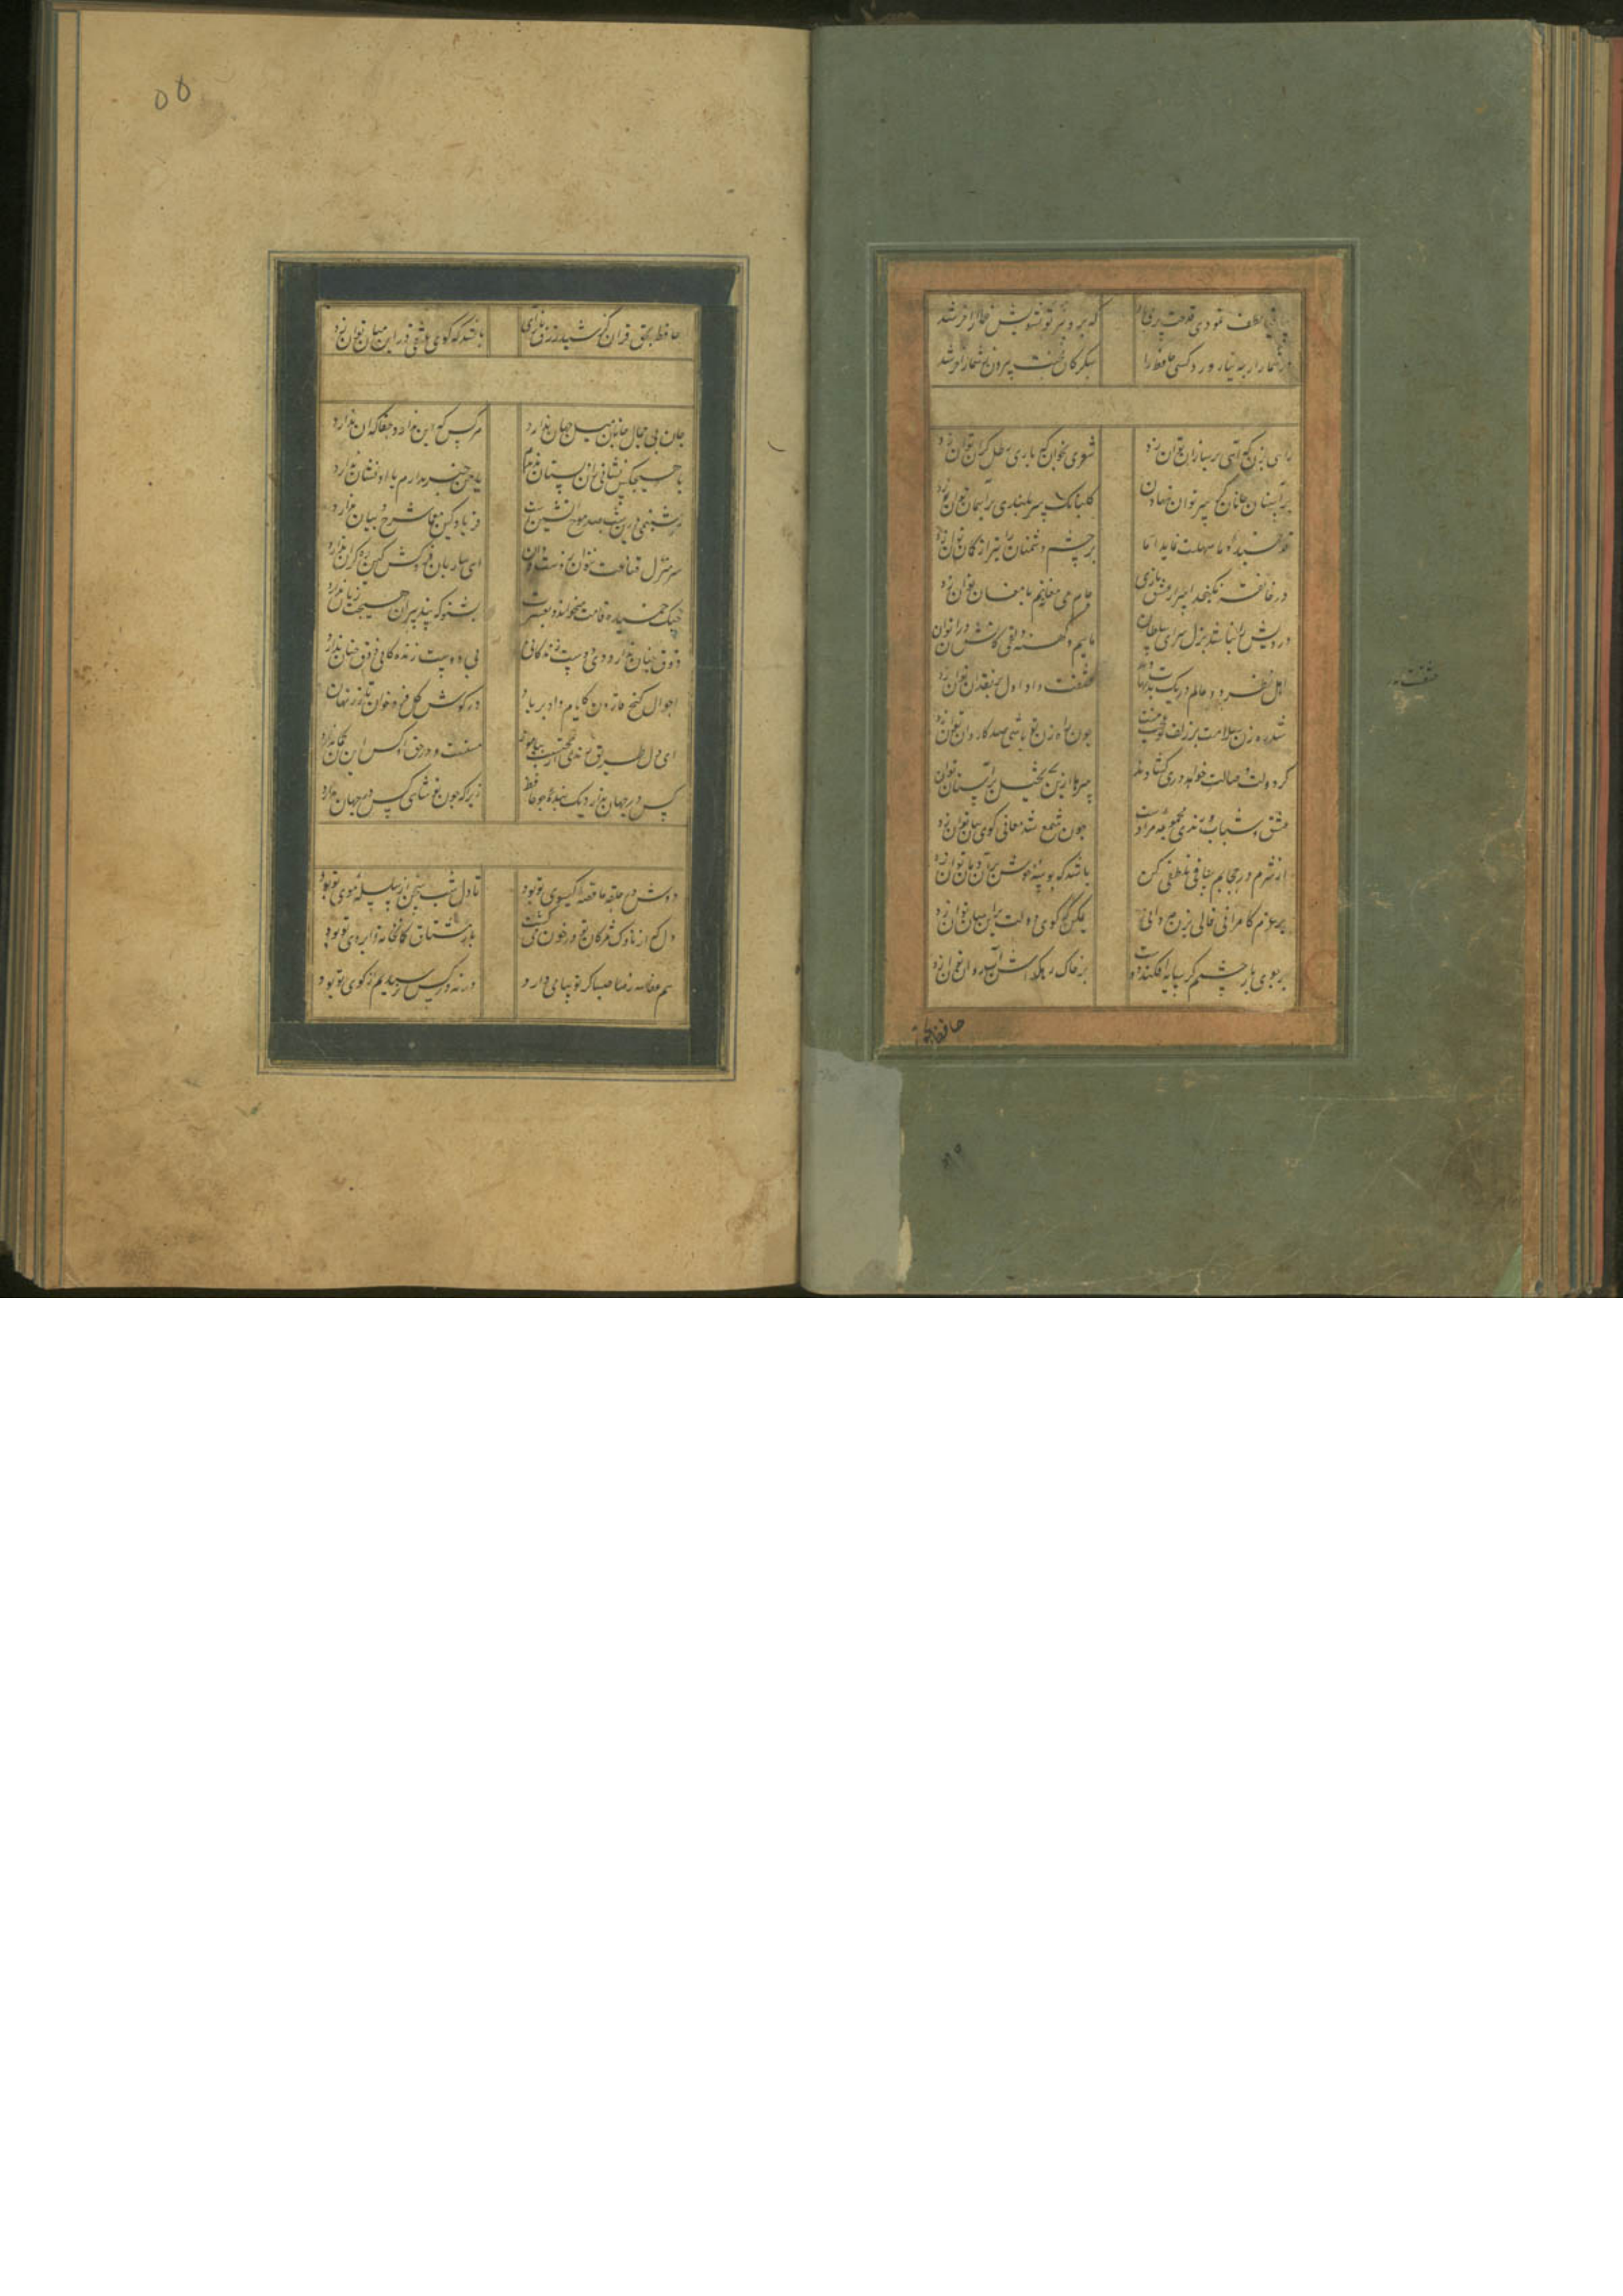 ساقی لطف نمودی قدحت پر می باد که به تدبیر تو تشویش خمار آخر شد
در شمار ار چه نیاورد کسی حافظ را شکر کان محنت بیرون ز شمار آخر شد
راهی بزن که آهی بر ساز آن توان زد شعری بخوان که با وی رطل گران توان زد
بر آستان جانان گر سر توان نهادن کلبانک سربلندی بر آسمان توان زد
قد خمیده ما سهلت نماید اما بر چشم دشمنان تیر از کمان توان زد
در خانقه نکنجد اسرار عشق بازی جام می مغانه هم با مغان توان زد
درویش را نباشد نزل سرای سلطان ماییم و کهنه دلقی کاتش در آن توان
اهل نظر دو عالم در یک عشقست و داو اول بر نقد جان توان زد
شد ره زن سلامت زلف تو چون راه زن تو باشی صد کاروان توان زد
کر دولت وصالت خواهد دری کشادن سرها ازین تخیل بر آستان توان
عشق و شباب و رندی مجموعه مرادست چون جمع شد معانی کوی بیان توان زد
از شرم در حجابم ساقی تلطفی کن باشد که بوسه بر آن دهان توان زد
بر عزم کامرانی فالی بزن چه دانی کوی دولت توان زد
بر جوی بار چشمم کر سایه افکند دوست بر خاک رهکذارش آب روان توان زد
حافظ بحق
حافظ بحق قران کز شید و زرق بازآی باشد که کوی عشقی در این میان توان زد
جان بی جمال جانان میل جهان ندارد هر کس که این ندارد حقا که آن ندارد
با هیچکس نشانی زان دلستان ندیدم یا من خبر ندارم یا او نشان ندارد
هر شبنمی درین ره صد موج آتشین است دردا که این معما شرح و بیان ندارد
سر منزل قناعت نتوان ز دست دادن ای ساربان فروکش کین ره کران ندارد
چنک خمیده قامت میخواندت بعشرت بشنو که پند پیران هیچت زیان ندارد
ذوق چنان ندارد بی دوست زندکانی بی دوست زندکانی ذوق چنان ندارد
احوال کنج قارون کایام داد بر باد در کوش کل فروخوان تا زر نهان
ای دل طریق رندی از محتسب بیاموز مستست و در حق او کس این کمان ندارد
کس در جهان ندارد یک بنده چو حافظ زیرا که چون تو شاهی کس در جهان ندارد
دوش در حلقه ما قصه کیسوی تو بود تا دل شب سخن از سلسله موی تو بود
دل که از ناوک مژکان تو در خون میکشت باز مشتاق کمانخانه ابروی تو بود
هم عفاالله صبا کز تو پیامی می داد ورنه در کس نرسیدیم که از کوی تو بود